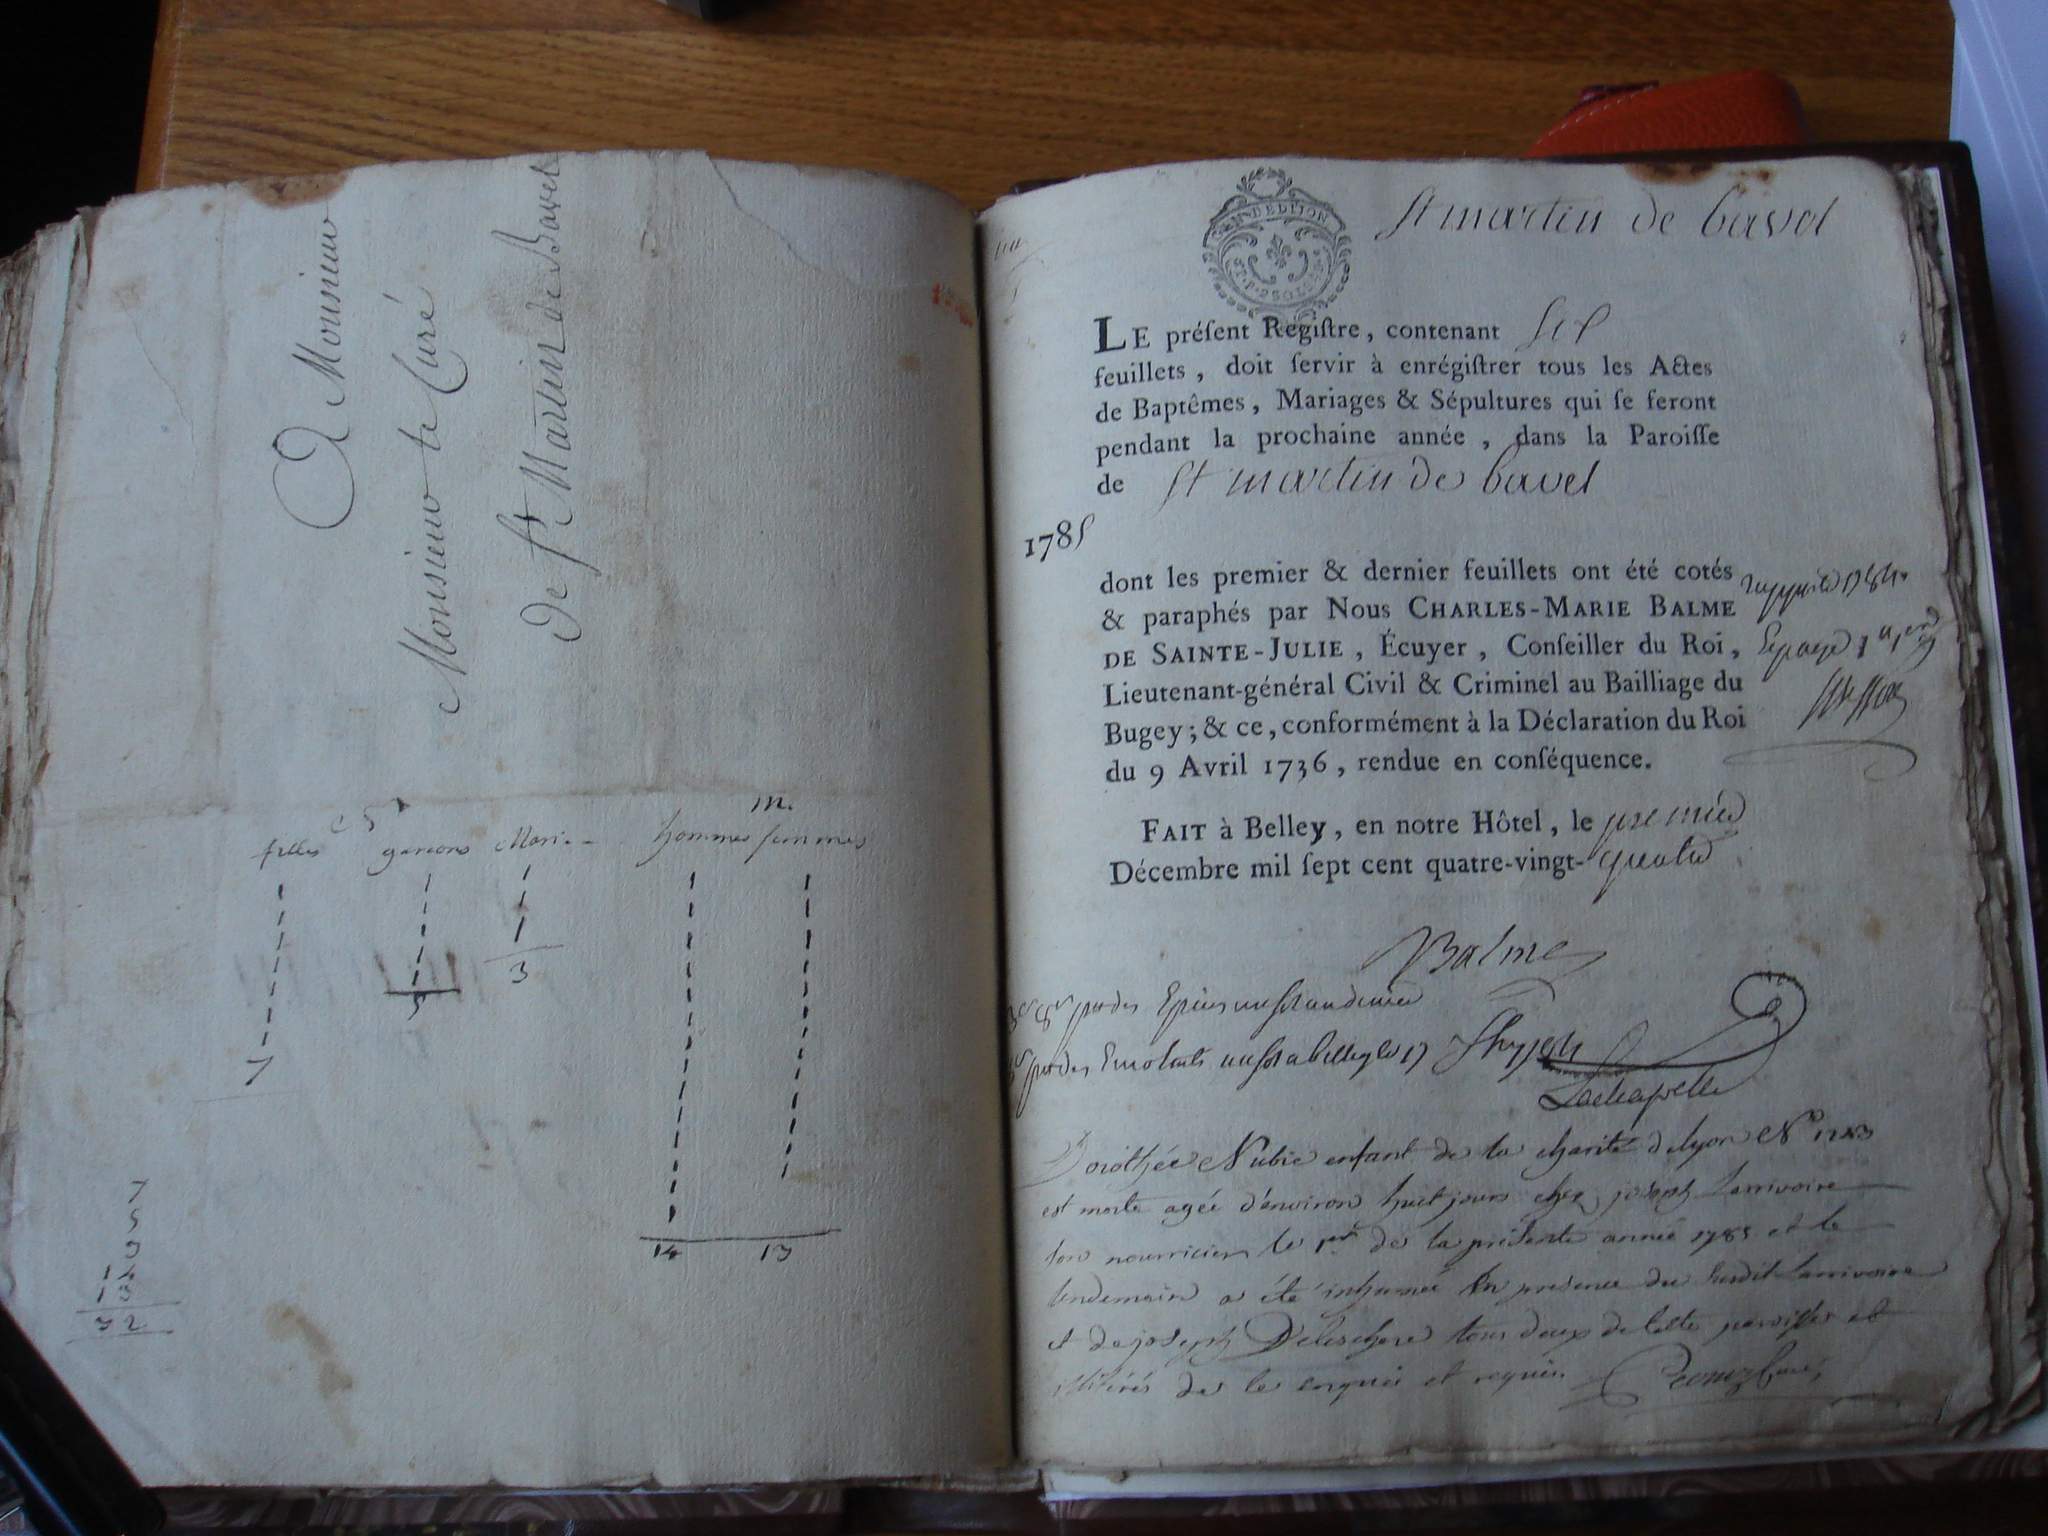 A Monsieur
Monsieur le Curé
de St Martin de Bavel
m.
filles garcons Mari hommes femmes
7
5
3
14 13
7
5
3
GEN. DE DIJON
st martin de bavel
LE préſent Regiſtre, contenant
feuillets, doit ſervir à enrégiſtrer tous les Actes
de Baptêmes, Mariages & Sépultures qui ſe feront
pendant la prochaine année, dans la Paroiſſe
de st martin de bavel
1785
dont les premier & dernier feuillets ont été cotés
& paraphés par Nous CHARLES-MARIE BALME
DE SAINTE-JULIE, Écuyer, Conſeiller du Roi,
Lieutenant-général Civil & Criminel au Bailliage du
Bugey; & ce, conformément à la Déclaration du Roi
du 9 Avril 1736, rendue en conſéquence.
FAIT à Belley, en notre Hôtel, le premier
Décembre mil ſept cent quatre-vingt-quatre
Balme
Lachapelle
Dorothée Nubie enfant de la charité de lyon No
est morte agée d'environ huit jours chez joseph Larrivoire
son nourricier le 1er de la présente année 1785 et le
lendemain a été inhumée en presence du susdit Larrivoire
et de joseph tous deux de cette paroisse et
illitérés de ce enquis et requis.